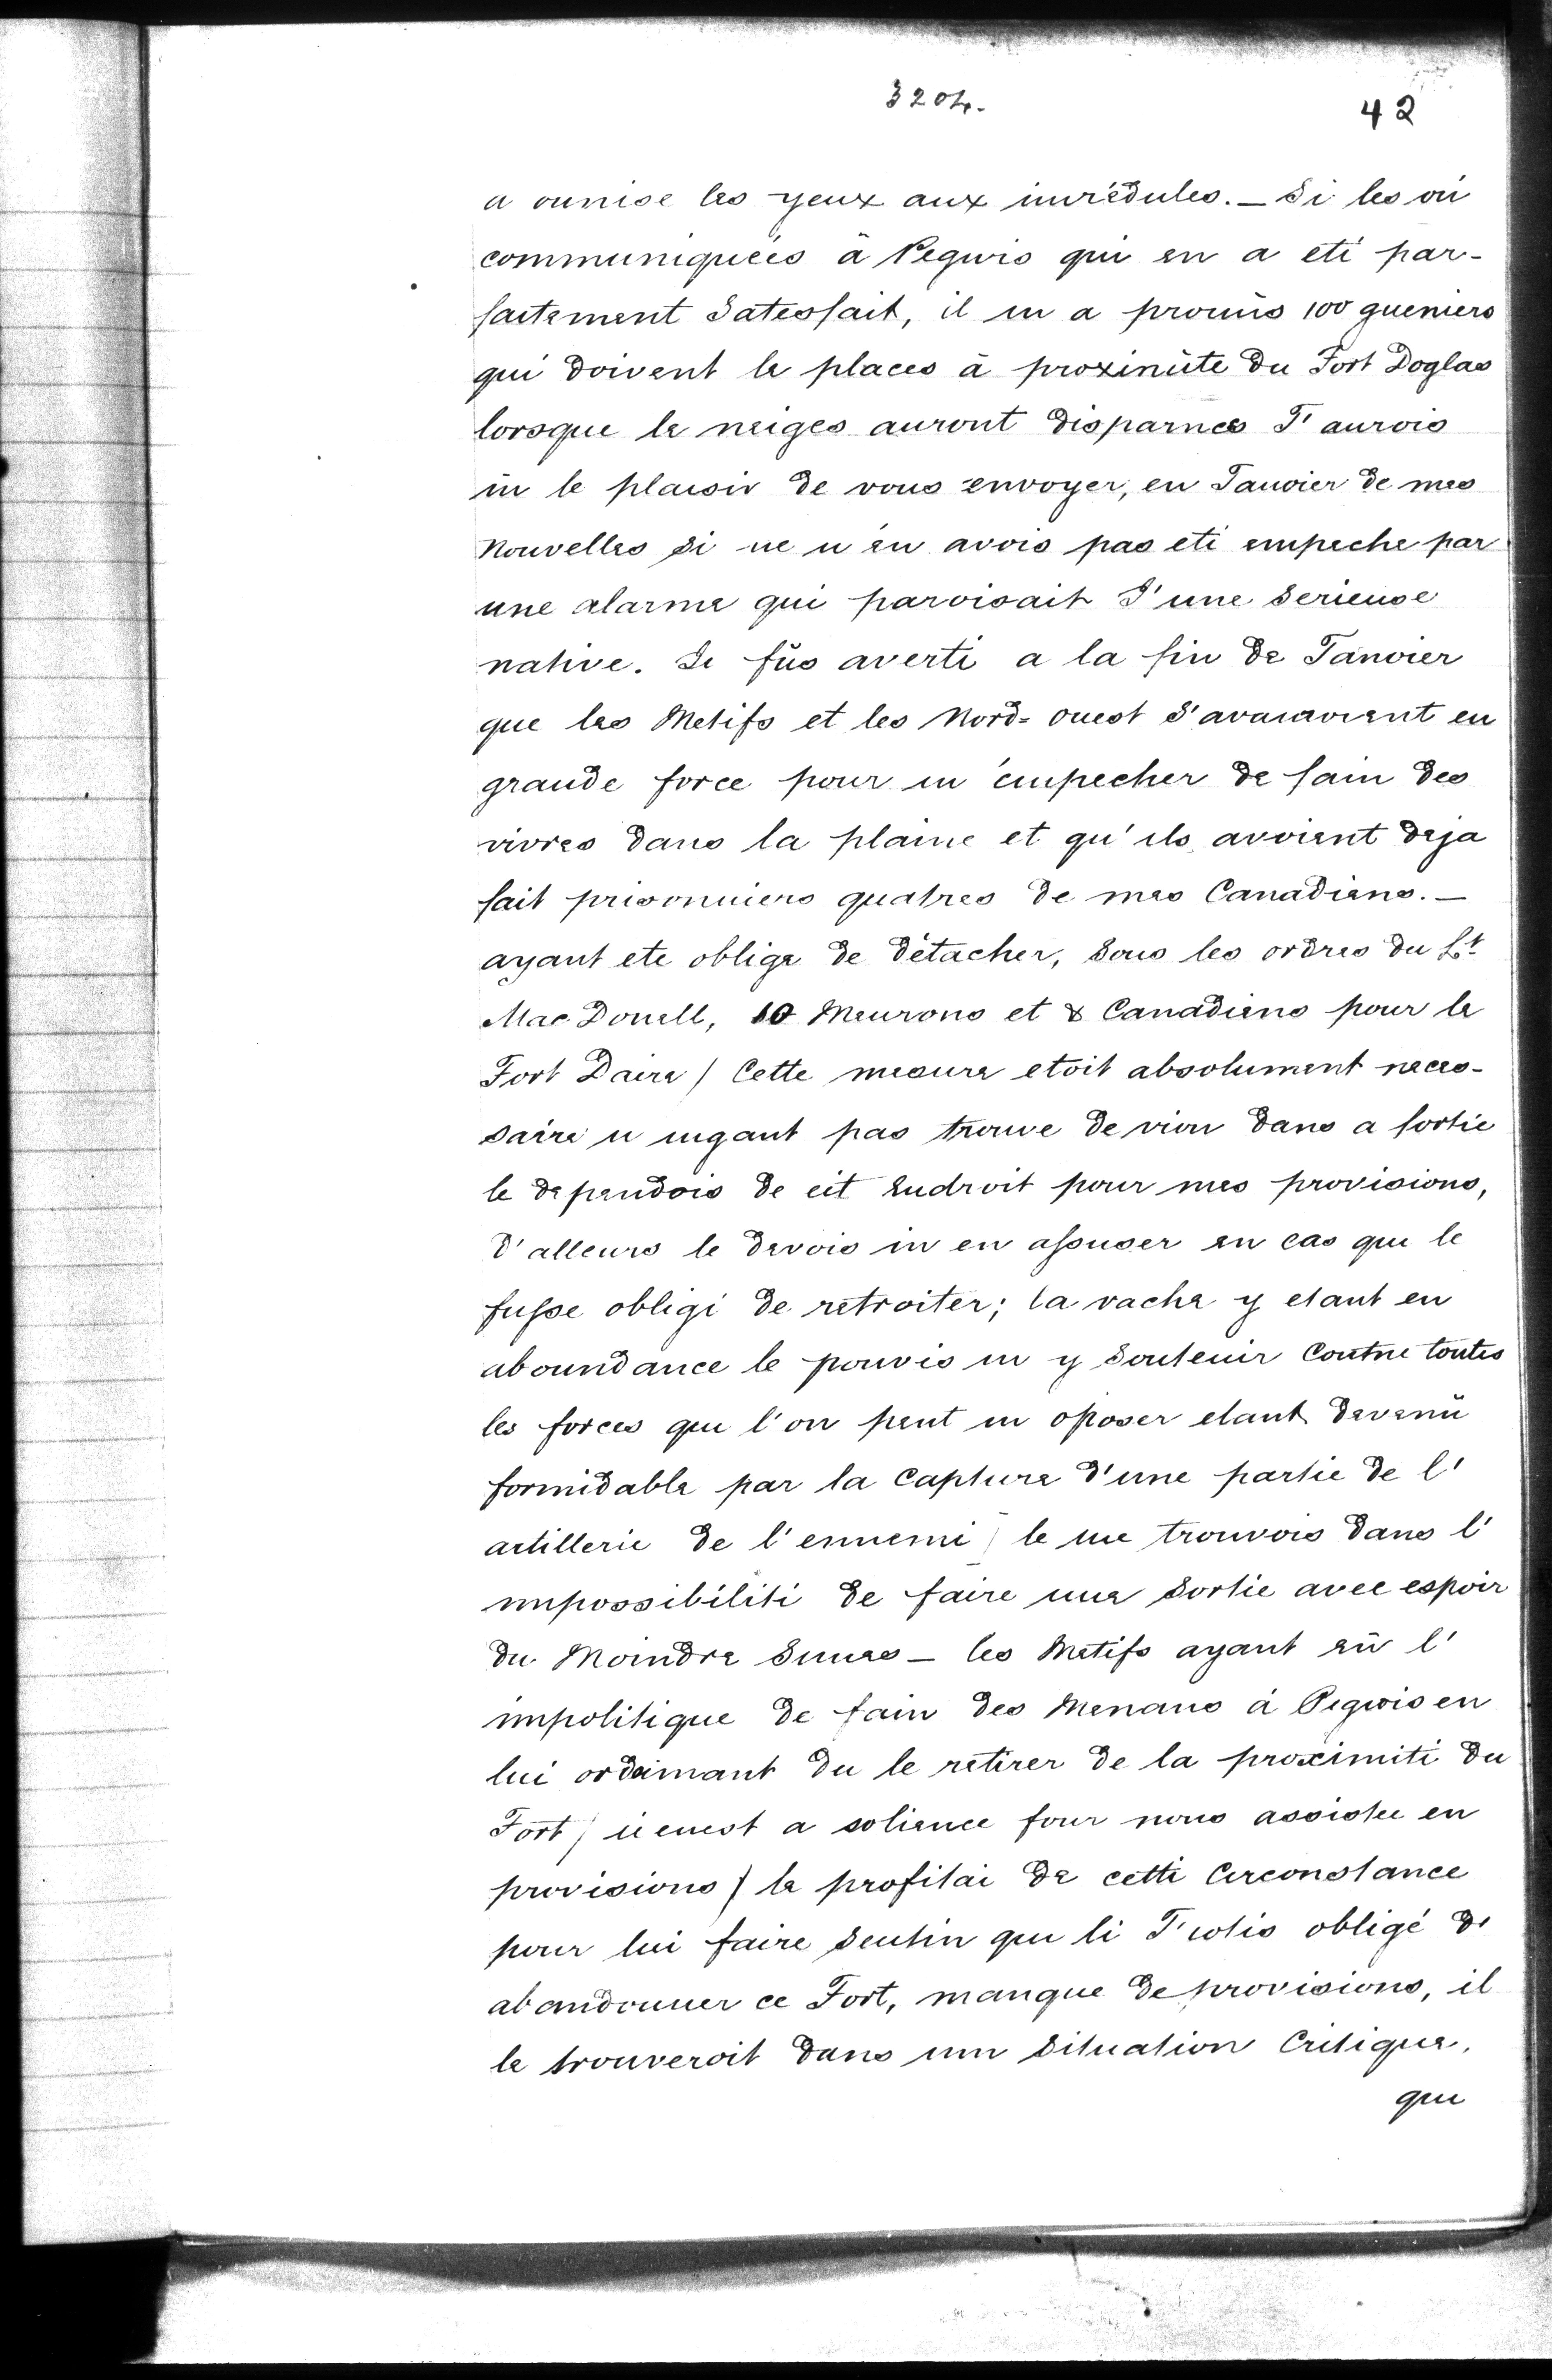 3204.
42
a ounise les yeux aux incrédules. — Si les oú
communiquées à Peguis qui en a eté par-
faitement Satesfait, il m a promis 100 gueniers
qui doivent le places à proximite du Fort Doglas
lorsque le neiges auront disparues J' aurois
in le plaisir de vous envoyer, en Janvier de mes
Nouvelles si ne n'en avois pas eté empeche par
une alarme qui paroisait d'une serieuse
native. Je fûs averti a la fin de Janvier
que les Metifs et les Nord=ouest s' avancoient en
grande force pour m empecher de fain des
vivres dans la plaine et qu' ils avoient deja
fait prisonniers quatres de mes Canadiens. —
ayant ete oblige de détacher, sous les ordres du Lt
MacDonell, 10 Meurons et 8 Canadiens pour le
Fort Daire / Cette mesure etoit absolument neces-
saire n ugant pas trouve de vion dans a sortie
le dependois de cit endroit pour mes provisions,
d' alleurs le devois m en assuser en cas que le
fusse obligé de retroiter; la vache y etant en
aboundance le pouvis m y soutenir contre toutes
les forces que l'on peut m oposer etant devenû
formidable par la capture d'une partie de l'
artillerie de l' ennemi / le me trouvois dans l'
impossibiliti de faire une sortie avec espoir
du Moindre Sunes — les Metifs ayant eû l'
impolitique de fain des Menans à Pegwis en
lui ordainant du le retirer de la proximiti du
Fort / a soliance four nous assister en
provisions / le profitai de cette Circonstance
pour lui faire Sentin que li J' etois obligé d'
abandonner ce Fort, manque de provisions, il
le trouveroit dans unn Situation Critique,
que